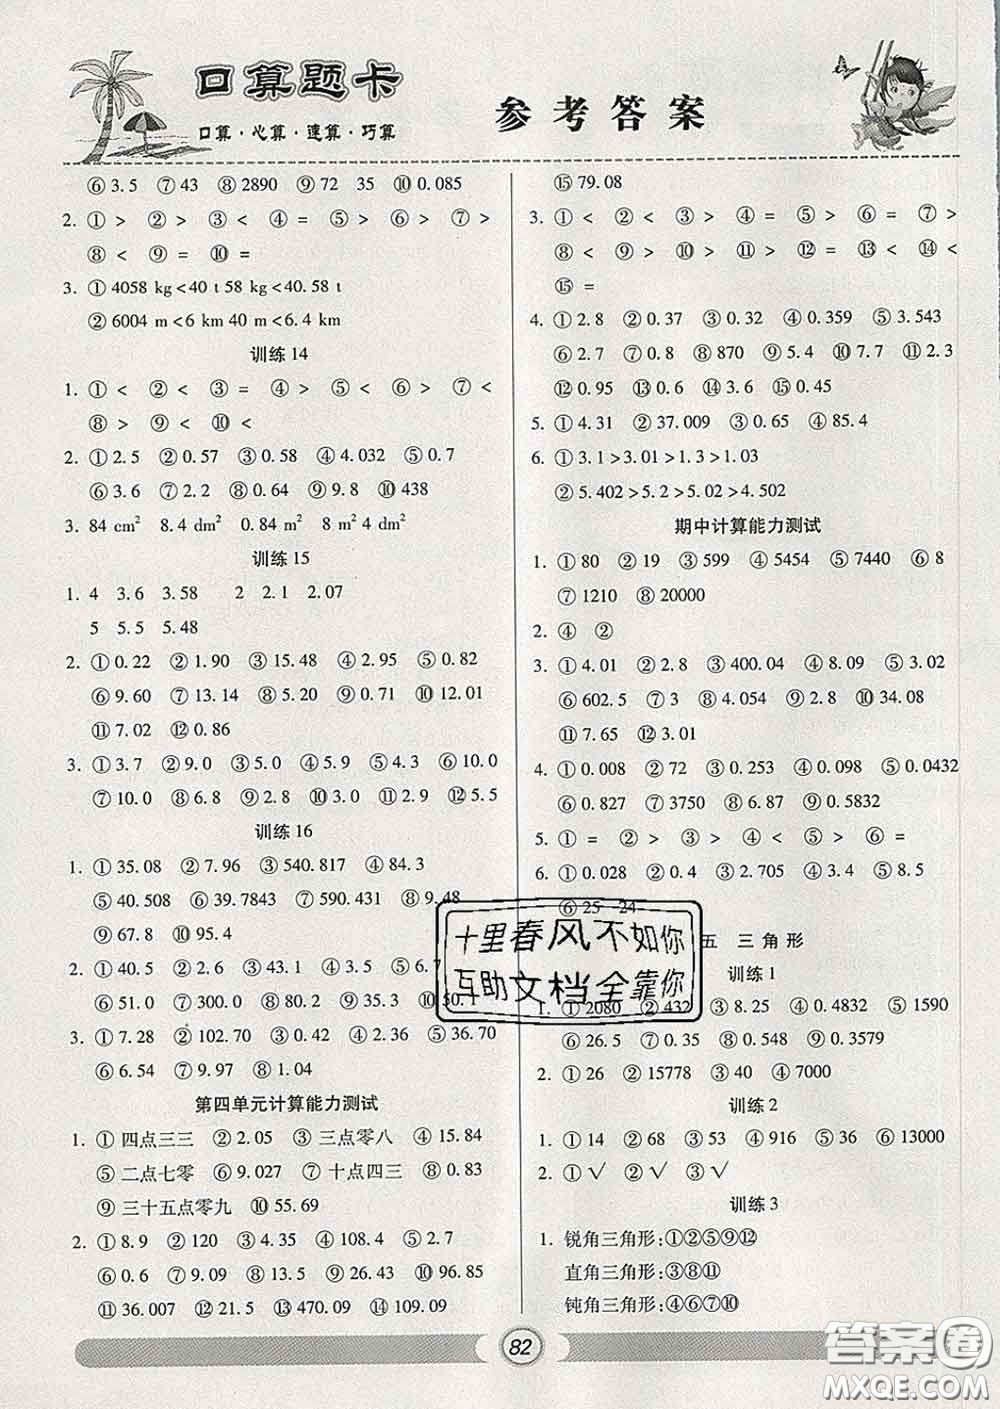 口算题卡
口算·心算·速算·巧算
参考答案
⑥3.5 ⑦43 ⑧2890 ⑨72 35 ⑩0.085
2. ①> ②> ③< ④= ⑤> ⑥> ⑦>
⑧< ⑨= ⑩=
3. ①4058 kg<40 t 58 kg<40.58 t
②6004 m<6 km 40 m<6.4 km
训练14
1. ①< ②< ③= ④> ⑤< ⑥> ⑦<
⑧> ⑨< ⑩<
2. ①2.5 ②0.57 ③0.58 ④4.032 ⑤0.7
⑥3.6 ⑦2.2 ⑧0.64 ⑨9.8 ⑩438
3. 84 cm² 8.4 dm² 0.84 m² 8 m² 4 dm²
训练15
1. 4 3.6 3.58 2 2.1 2.07
5 5.5 5.48
2. ①0.22 ②1.90 ③15.48 ④2.95 ⑤0.82
⑥9.60 ⑦13.14 ⑧5.20 ⑨0.01 ⑩12.01
⑪7.02 ⑫0.86
3. ①3.7 ②9.0 ③5.0 ④5.9 ⑤4.3 ⑥10.0
⑦10.0 ⑧6.8 ⑨2.8 ⑩3.0 ⑪2.9 ⑫5.5
训练16
1. ①35.08 ②7.96 ③540.817 ④84.3
⑤40.508 ⑥39.7843 ⑦590.431 ⑧9.48
⑨67.8 ⑩10.15
2. ①40.5 ②26.4 ③0.6 ④5.6 ⑤6.7
⑥51.0 ⑦300.0 ⑧31.0 ⑨5.0 ⑩50.1
3. ①7.28 ②102.70 ③0.42 ④2.36 ⑤36.70
⑥6.54 ⑦9.97 ⑧1.04
第四单元计算能力测试
1. ①四点三三 ②2.05 ③三点零八 ④15.84
⑤二点七零 ⑥9.027 ⑦十点四三 ⑧0.83
⑨三十五点零九 ⑩55.69
2. ①8.9 ②120 ③4.6 ④108.4 ⑤2.7
⑥0.6 ⑦9.78 ⑧350 ⑨60 ⑩96.85
⑪36.007 ⑫21.5 ⑬107 ⑭109.09
⑮79.08
3. ①< ②< ③> ④= ⑤> ⑥= ⑦>
⑧< ⑨< ⑩> ⑪> ⑫= ⑬< ⑭<
⑮=
4. ①2.8 ②0.37 ③0.32 ④0.359 ⑤3.543
⑥2.7 ⑦0.68 ⑧870 ⑨5.4 ⑩7.7 ⑪2.3
⑫0.95 ⑬0.6 ⑭3.6 ⑮0.45
5. ①4.31 ②37.009 ③0.65 ④85.4
6. ①3.1>3.01>1.3>1.03
②5.402>5.2>5.02>4.502
期中计算能力测试
1. ①80 ②19 ③599 ④5454 ⑤7440 ⑥8
⑦1210 ⑧20000
2. ④ ②
3. ①4.01 ②2.8 ③400.04 ④8.09 ⑤3.02
⑥602.5 ⑦3 ⑧4.054 ⑨2.8 ⑩34.08
⑪7.65 ⑫3.01
4. ①0.008 ②72 ③0.253 ④0.098 ⑤0.0432
⑥0.827 ⑦3750 ⑧6.87 ⑨0.5832
5. ①= ②> ③> ④< ⑤> ⑥=
6. ①0.028 ②0.3 ③2.705 ④3.5 ⑤8.5
⑥25 24
五 三角形
训练1
1. ①2080 ②432 ③8.25 ④0.4832 ⑤1590
⑥26.5 ⑦0.35 ⑧0.548 ⑨0.753
2. ①26 ②15778 ③40 ④7000
训练2
1. ①14 ②68 ③53 ④916 ⑤36 ⑥13000
2. ①√ ②√ ③√
训练3
1. 锐角三角形:①②⑤⑨⑫
直角三角形:③⑧⑪
钝角三角形:④⑥⑦⑩
十里春风不如你
互助文档全靠你
82
答案圈
MXQE.COM